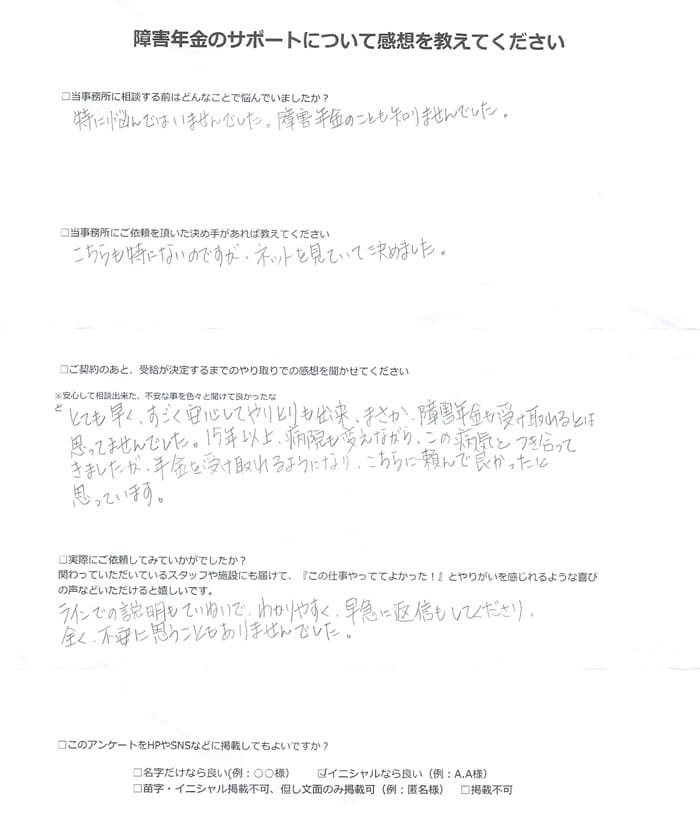 障害年金のサポートについて感想を教えてください
□当事務所に相談する前はどんなことで悩んでいましたか？
特に悩んではいませんでした。障害年金のことも知りませんでした。
□当事務所にご依頼を頂いた決め手があれば教えてください
こちらも特にないのですが、ネットを見ていて決めました。
□ご契約のあと、受給が決定するまでのやり取りでの感想を聞かせてください
※安心して相談出来た、不安な事を色々と聞けて良かったな
ど
とても早く、すごく安心してやりとりも出来、まさか、障害年金を受け取れるとは
思ってませんでした。15年以上、病院も変えながら、この病気とつき合って
きましたが、年金を受け取れるようになり、こちらに頼んで良かったと
思っています。
□実際にご依頼してみていかがでしたか？
関わっていただいているスタッフや施設にも届けて、『この仕事やっててよかった！』とやりがいを感じれるような喜び
の声などいただけると嬉しいです。
ラインでの説明もていねいで、わかりやすく、早急に返信もしてくださり、
全く、不安に思うこともありませんでした。
□このアンケートをHPやSNSなどに掲載してもよいですか？
□名字だけなら良い(例：〇〇様） ☑イニシャルなら良い（例：A.A様）
□苗字・イニシャル掲載不可、但し文面のみ掲載可（例：匿名様） □掲載不可